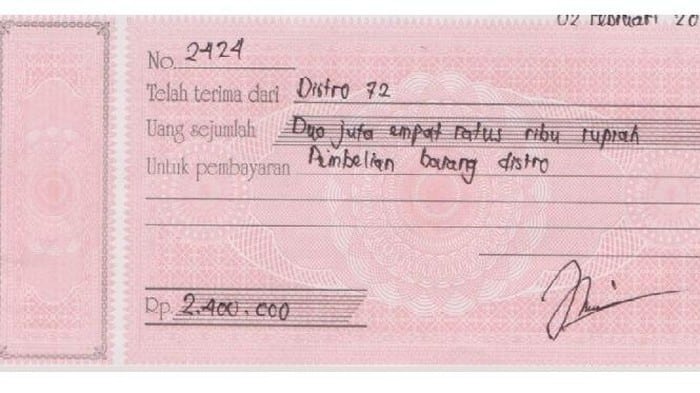 02 Februari 20
No. 2424
Telah terima dari Distro 72
Uang sejumlah Dua juta empat ratus ribu rupiah
Untuk pembayaran Pembelian barang distro
Rp. 2.400.000